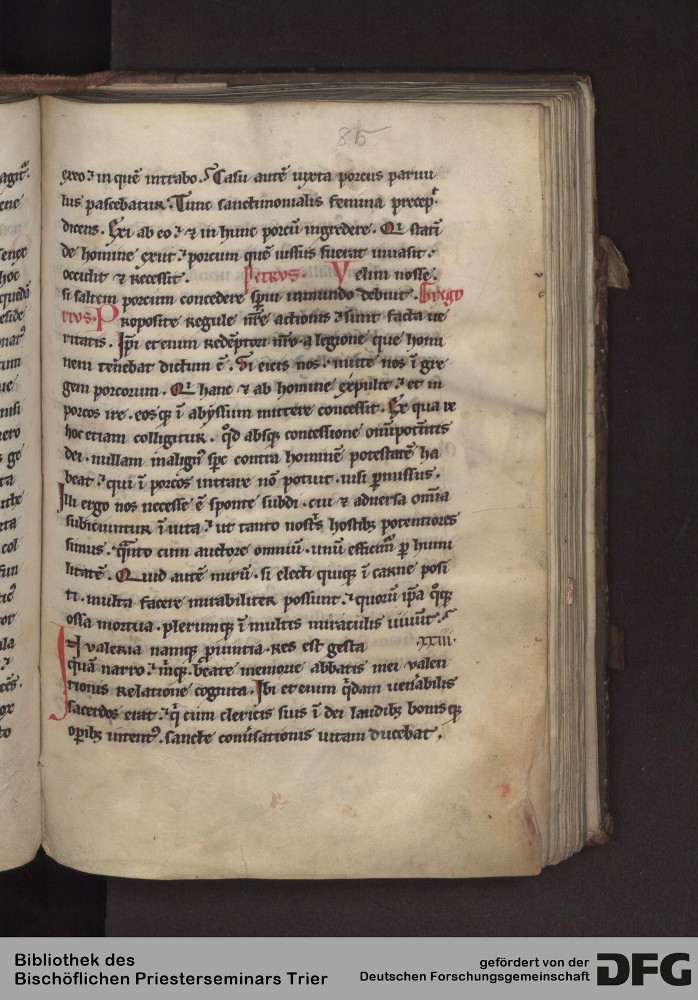 85
exeo ⁊ in quē intrabo. Casu autē iuxta porcus paruu
lus pascebatur. Tunc sanctimonialis femina precep̄
dicens. Exi ab eo ⁊ in hunc porcū ingredere. Qi statī
de homine exiit ⁊ porcum quē iussus fuerat inuasit.
occidit ⁊ recessit. Petrvs. Velim nosse.
si saltem porcum concedere sp̄ui inmundo debuit. Grego
rivs. Proposite regule nr̄e actionis sunt facta ue
ritatis. Ip̄i etenim redēptori nr̄o a legione que homi
nem tenebat dictum ē. Si eicis nos mitte nos ī gre
gem porcorum. Qi hanc ⁊ ab homine expulit ⁊ et in
porcos ire. eosq; ī abyssum mittere concessit. Ex qua re
hoc etiam colligitur. qd̄ absq; concessione om̄ipotentis
dei. nullam malign' sp̄c contra hominē potestatē ha
beat. qui ī porcos intrare nō potuit. nisi p̄missus.
Illi ergo nos necesse ē sponte subdi. cui ⁊ aduersa om̄ia
subiciuntur īuita. ut tanto nostris hostib; potentiores
simus. quanto cum auctore omniū. unū efficim' p humi
litatē. Quid autē mirū. si electi quiq; ī carne posi
ti. multa facere mirabiliter possunt. quorū ip̄a q̄q;
ossa mortua. plerumq; ī multis miraculis uiuūt.
In ualeria namq; p̄uintia. res est gesta XXIII.
quā narro. m'q; beate memorie abbatis mei ualen
tionis relatione cognita. Ibi etenim q̄dam uen'abilis
sacerdos erat. q̄ cum clericis suis ī dei laudib; bonisq;
op̄ib; intent'. sancte conu'sationis uitam ducebat.
Bibliothek des
Bischöflichen Priesterseminars Trier
gefördert von der
Deutschen Forschungsgemeinschaft
DFG